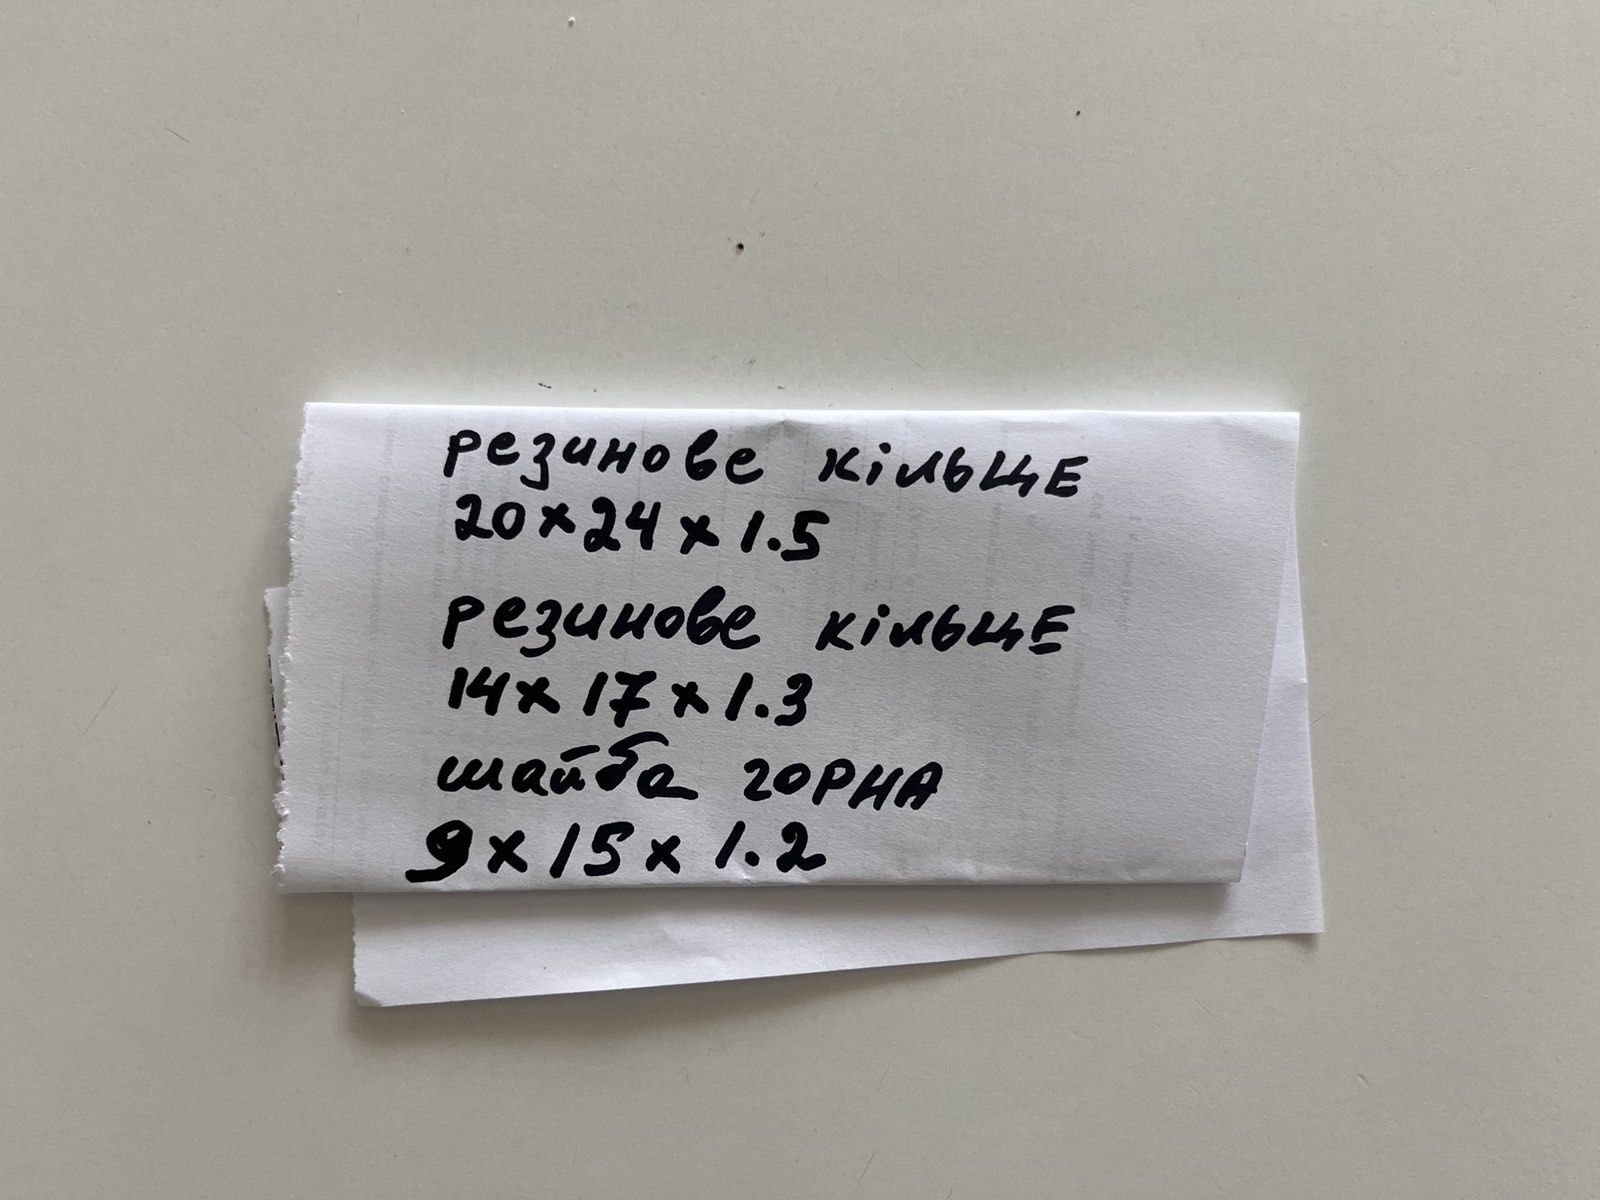 резинове кільце
20x24x1.5
резинове кільце
14x17x1.3
шайба горна
9x15x1.2